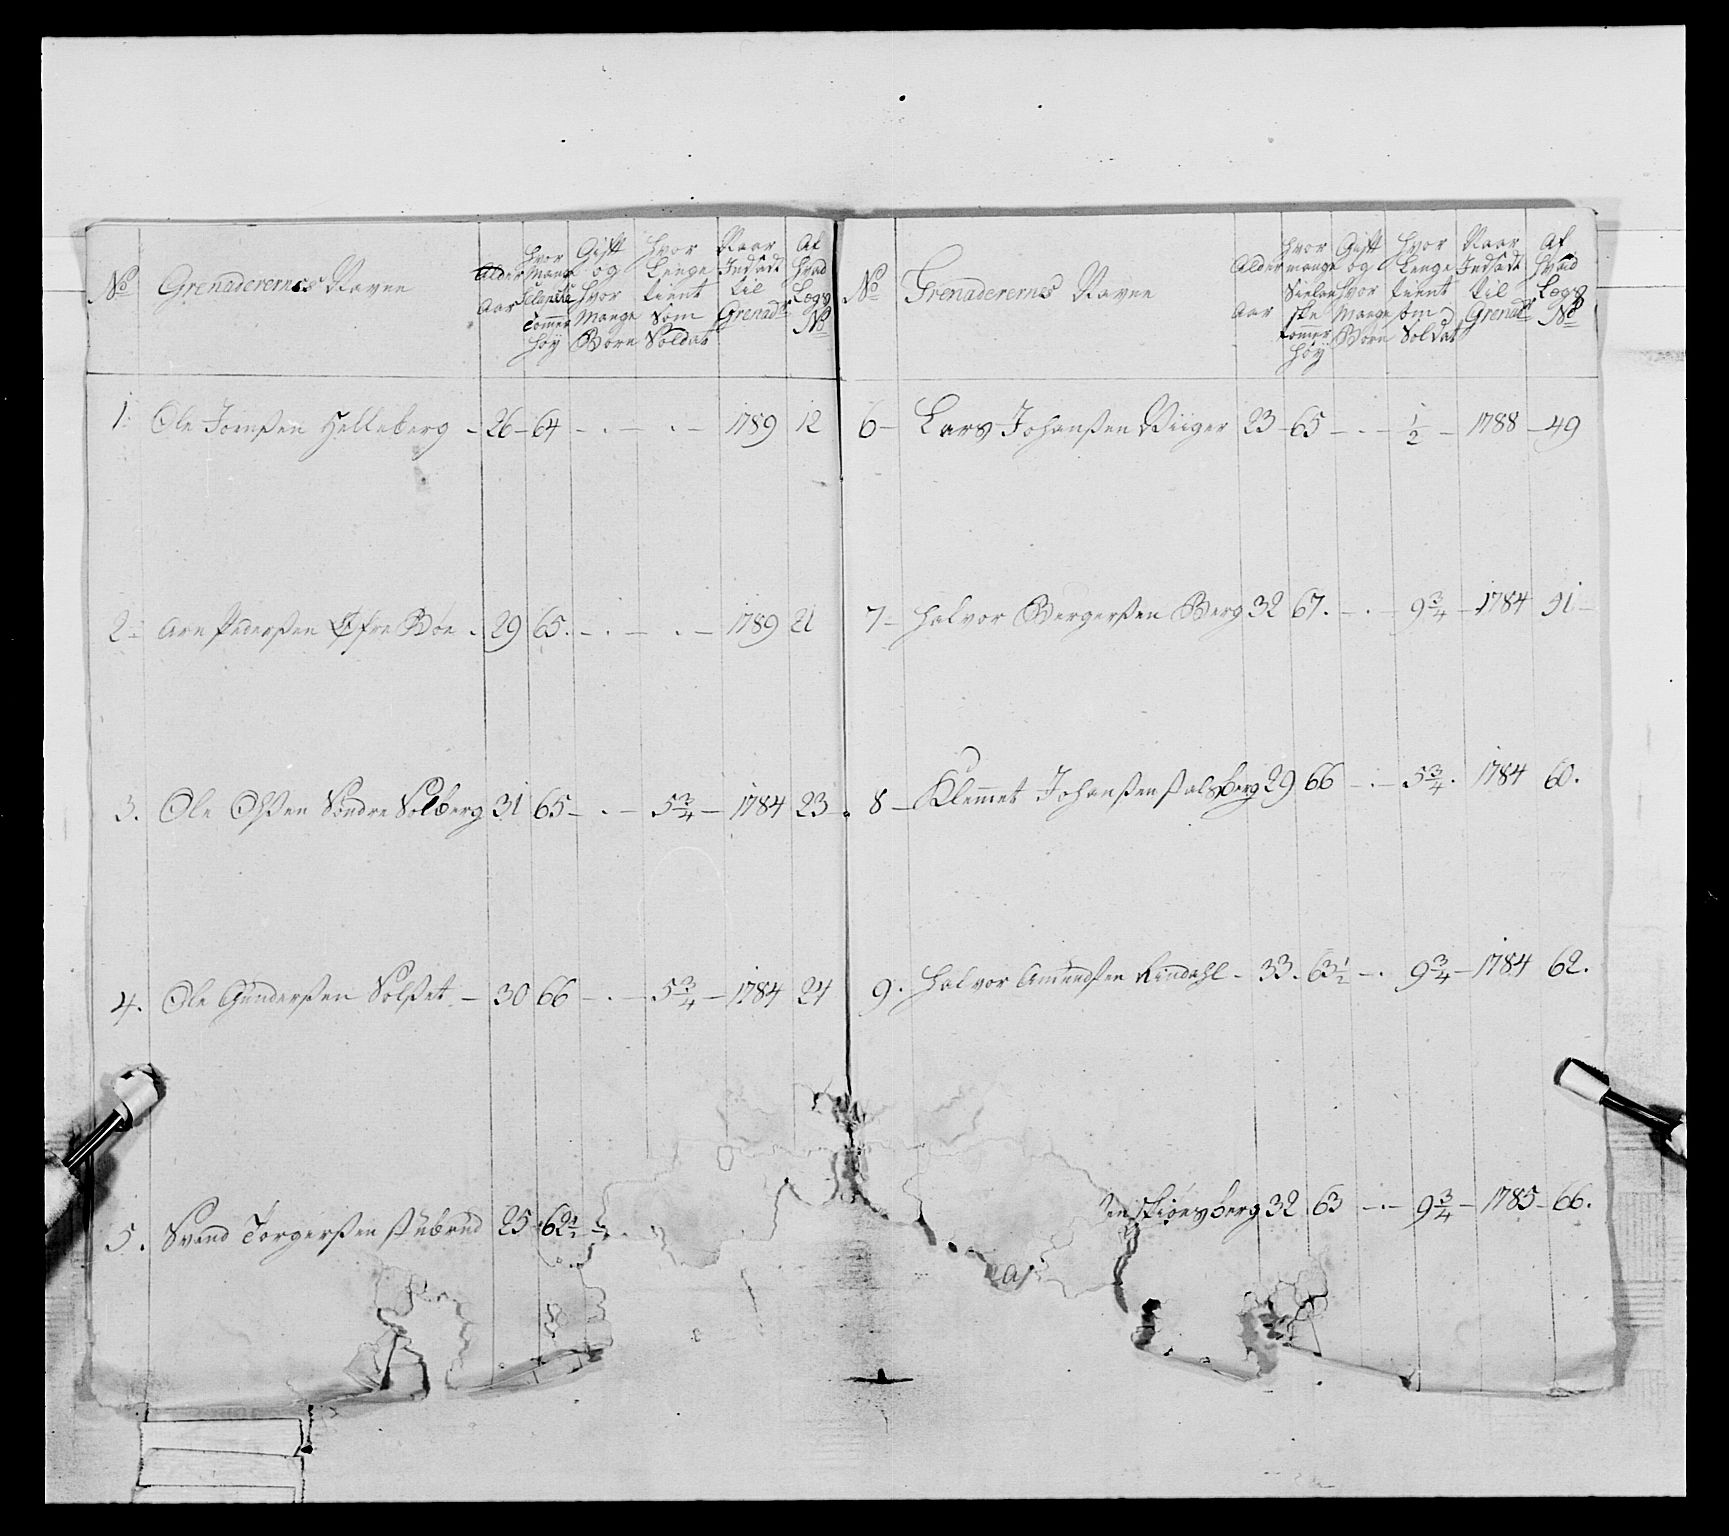 No Grenaderernes Navne Alder Aar Hvor Mange Sielandske Tommer høy Gift og Hvor Mange Børn Hvor Lenge tient som Soldat Naar Indsadt til Grenadr Af Hvad Lægs No
1. Ole Joensen Helleberg - 26 - 64 - . - . - 1789 12
2 - Arn Pedersen Øfre Boe . 29 65. - . - . - 1789 21
3. Ole Olsen Søndre Solberg 31 65 - . - 5 3/4 - 1784 23 .
4. Ole Gundersen Solset - 30 66 - . - 5 3/4 - 1784 24
5. Svend Torgersen Stubrud 25 62 1/2 -
No Grenaderernes Navne Alder Aar Hvor mange Sielandske tommer høy Gift og Hvor Mange Børn Hvor Lenge tient som Soldat Naar Indsadt til Grenadr Af Hvad Lægs No
6 - Lars Johansen Viiger 23 - 65 - . - 1/2 - 1788 - 49
7 - Halvor Bergersen Berg 32 67. - . - 9 3/4 - 1784 51 -
8 - Klemmet Johansen 29 66 - . - 5 3/4 . 1784 60.
9. Halvor Amundsen Rindahl - 33. 63 1/2 - . 9 3/4 - 1784 62.
32 63 - . - 9 3/4 - 1785 - 66.